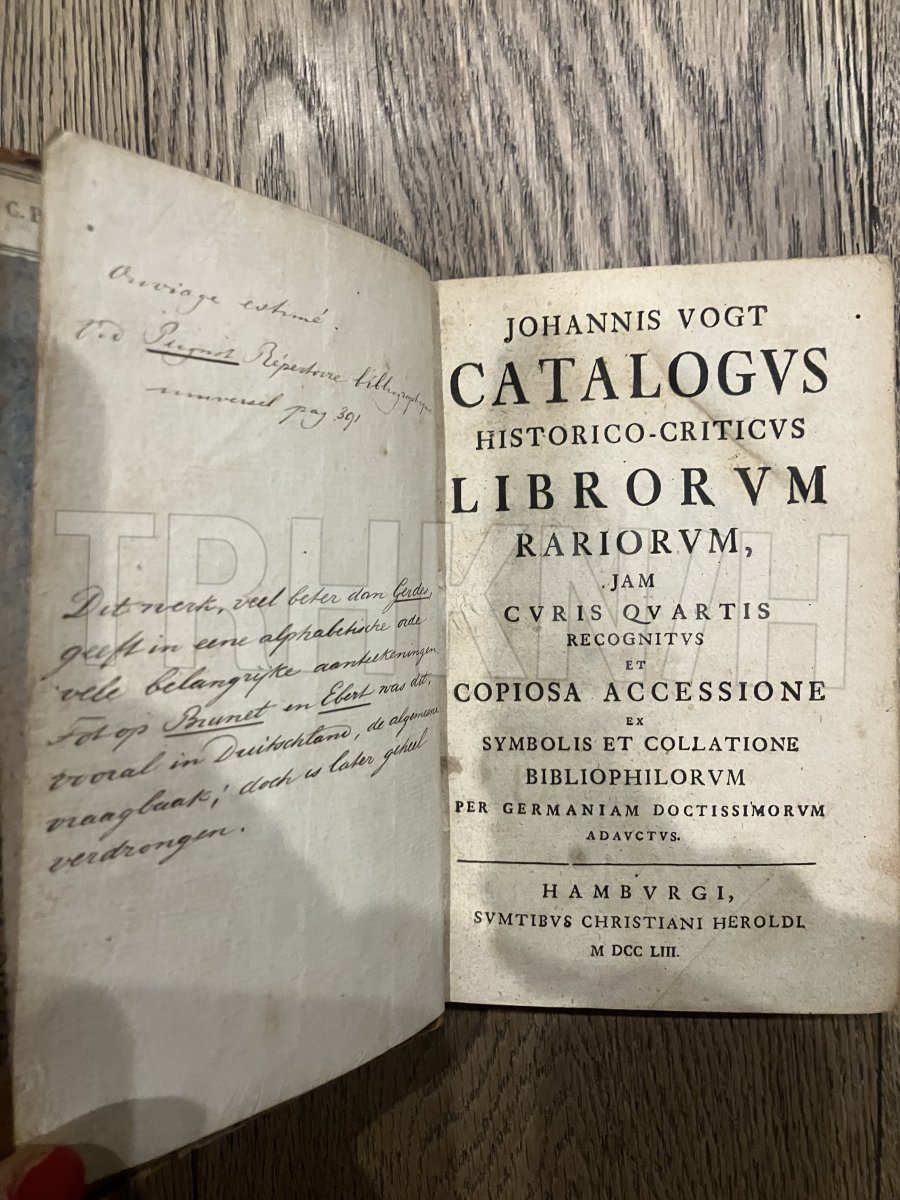 C. P
Ouvrage estimé.
Vid Peignot Répertoire bibliographique
universel pag 391
Dit werk, veel beter dan Gerdes,
geeft in eene alphabetische orde
vele belangrijke aanteekeningen
Tot op Brunet en Ebert was dit,
vooral in Duitschland, de algemeene
vraagbaak; doch is later geheel
verdrongen.
JOHANNIS VOGT
CATALOGVS
HISTORICO-CRITICVS
LIBRORVM
RARIORVM,
JAM
CVRIS QVARTIS
RECOGNITVS
ET
COPIOSA ACCESSIONE
EX
SYMBOLIS ET COLLATIONE
BIBLIOPHILORVM
PER GERMANIAM DOCTISSIMORVM
ADAVCTVS.
HAMBVRGI,
SVMTIBVS CHRISTIANI HEROLDI,
M DCC LIII.
TRHKNH